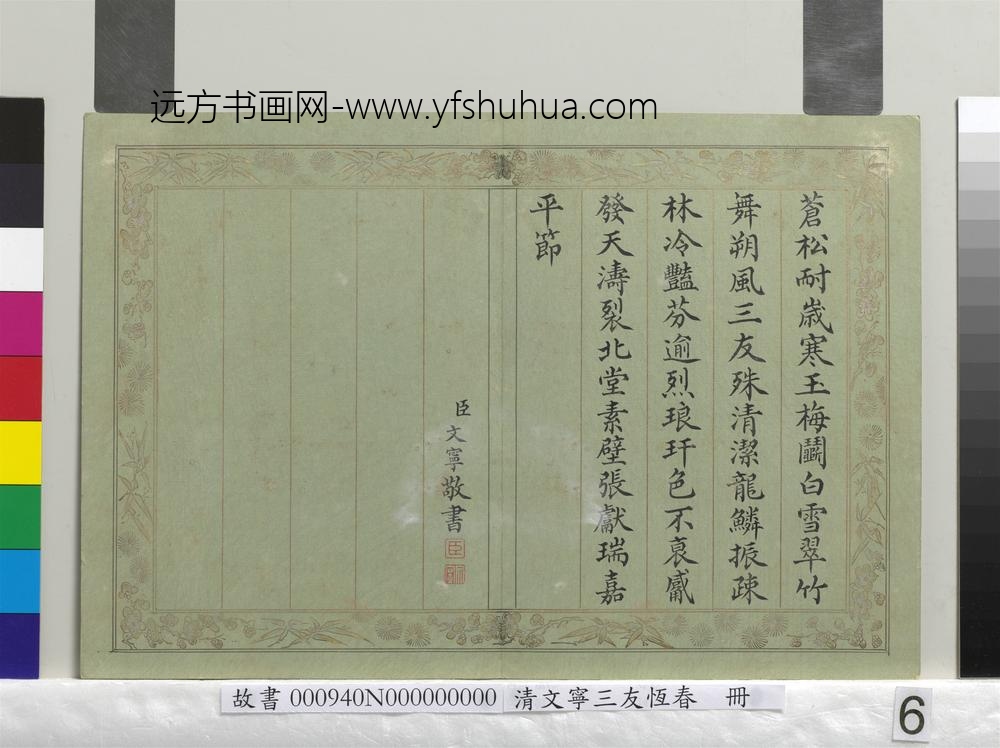 远方书画网-www.yfshuhua.com
蒼松耐歲寒玉梅鬭白雪翠竹
舞朔風三友殊清潔龍鱗振疎
林冷豔芬逾烈琅玕色不衰鬳
發天濤裂北堂素壁張獻瑞嘉
平節
臣文寧敬書
臣
故書 000940N000000000 清文寧三友恆春 冊
6